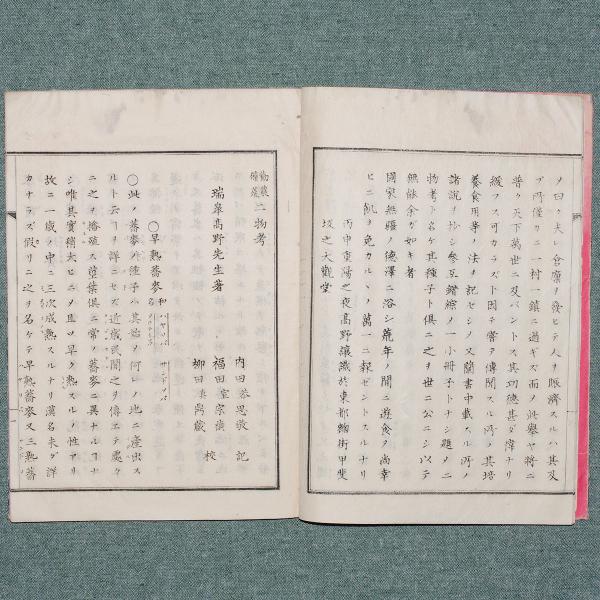 ノ曰ク夫レ倉廩ヲ發ヒテ人ヲ賑濟スルハ其及
ブ所僅カニ一村一鎮ニ過ギズ而ノ此擧ヤ將ニ
普ク天下萬世ニ及バントス其功德甚ダ偉ナリ
緩フス可カラズト因テ嘗テ傳聞スル所ノ其培
養食用等ノ法ヲ記セシメ又蘭書中載スル所ノ
諸説ヲ抄シ參互錯綜ノ一小冊子トナシ題ノ二
物考ト名ケ其種子ト俱ニ之ヲ世ニ公ニシ以テ
無餘ノ如キ者
國家無疆ノ德澤ニ浴シ荒年ノ間ニ遊食ノ尚幸
ヒニ飢ヲ免カルヽノ萬一ニ報ゼントスルナリ
丙申重陽之夜高野讓識於東都麹街甲斐
坂之大觀堂
勸農
備荒 二物考
瑞皋高野先生著
内田恭思敬 記
福田宗禎
柳田鼎藏 校
○早熟蕎麥 和名 ハヤソバ サンドソバ
○此ノ蕎麥ノ種子ハ其始メ何レノ地ニ産出ス
ルト云フヲ詳ニセズ近歳民間之ヲ傳エテ處々
ニ之ヲ播殖ス莖葉俱ニ常ノ蕎麥ニ異ナルコナ
シ唯其實稍大ヒニノ且ツ早ク熟スルノ性アリ
故ニ一歳ノ中ニ三次成熟スルナリ漢名未ダ詳
カナラズ假リニ之ヲ名ケテ早熟蕎麥又三熟蕎